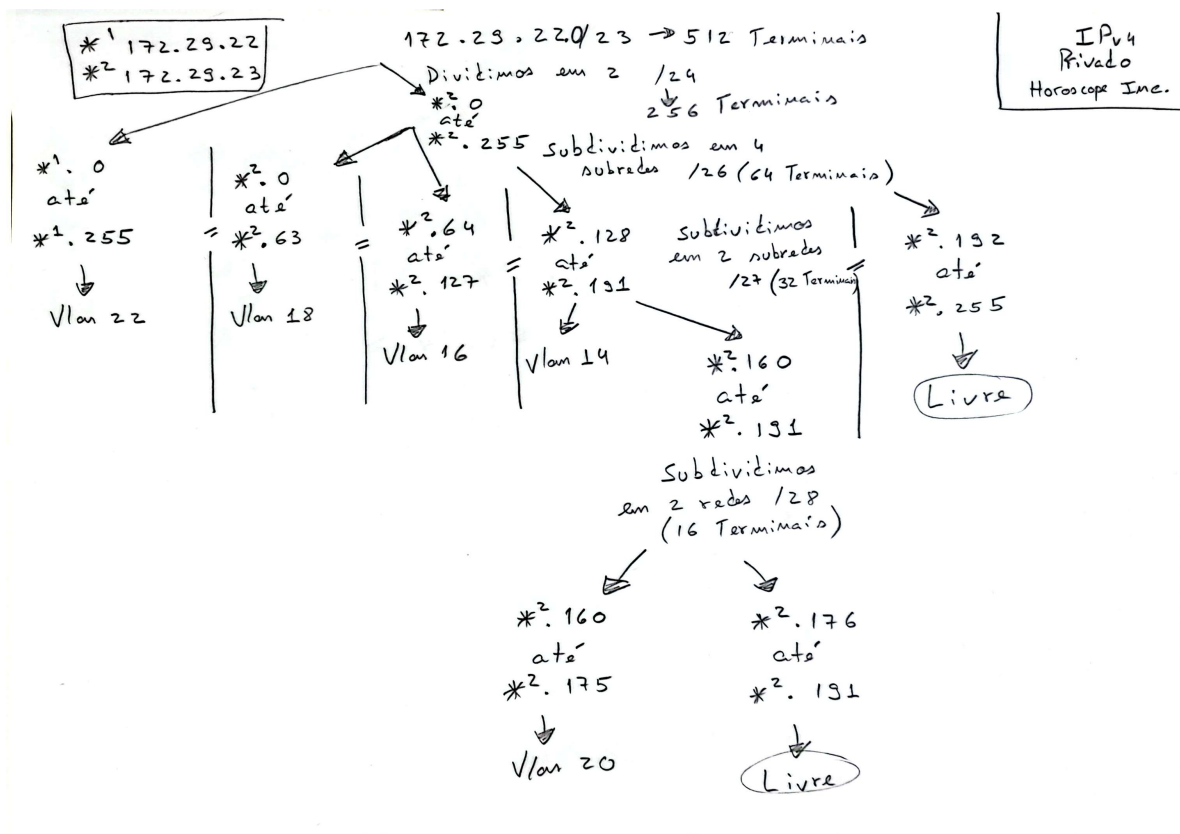 *¹ 172.29.22
*² 172.29.23
172.29.22.0/23 → 512 Terminais
IPv4
Privado
Horoscope Inc.
Dividimos em 2 /24
256 Terminais
*². 0
até
*². 255
Subdividimos em 4
subredes /26 (64 Terminais)
*¹. 0
até
*¹. 255
Vlan 22
*². 0
até
*². 63
Vlan 18
*². 64
até
*². 127
Vlan 16
*². 128
até
*². 191
Vlan 14
Subdividimos
em 2 subredes
/27 (32 Terminais)
*². 192
até
*². 255
Livre
*². 160
até
*². 191
Subdividimos
em 2 redes /28
(16 Terminais)
*². 160
até
*². 175
Vlan 20
*². 176
até
*². 191
Livre